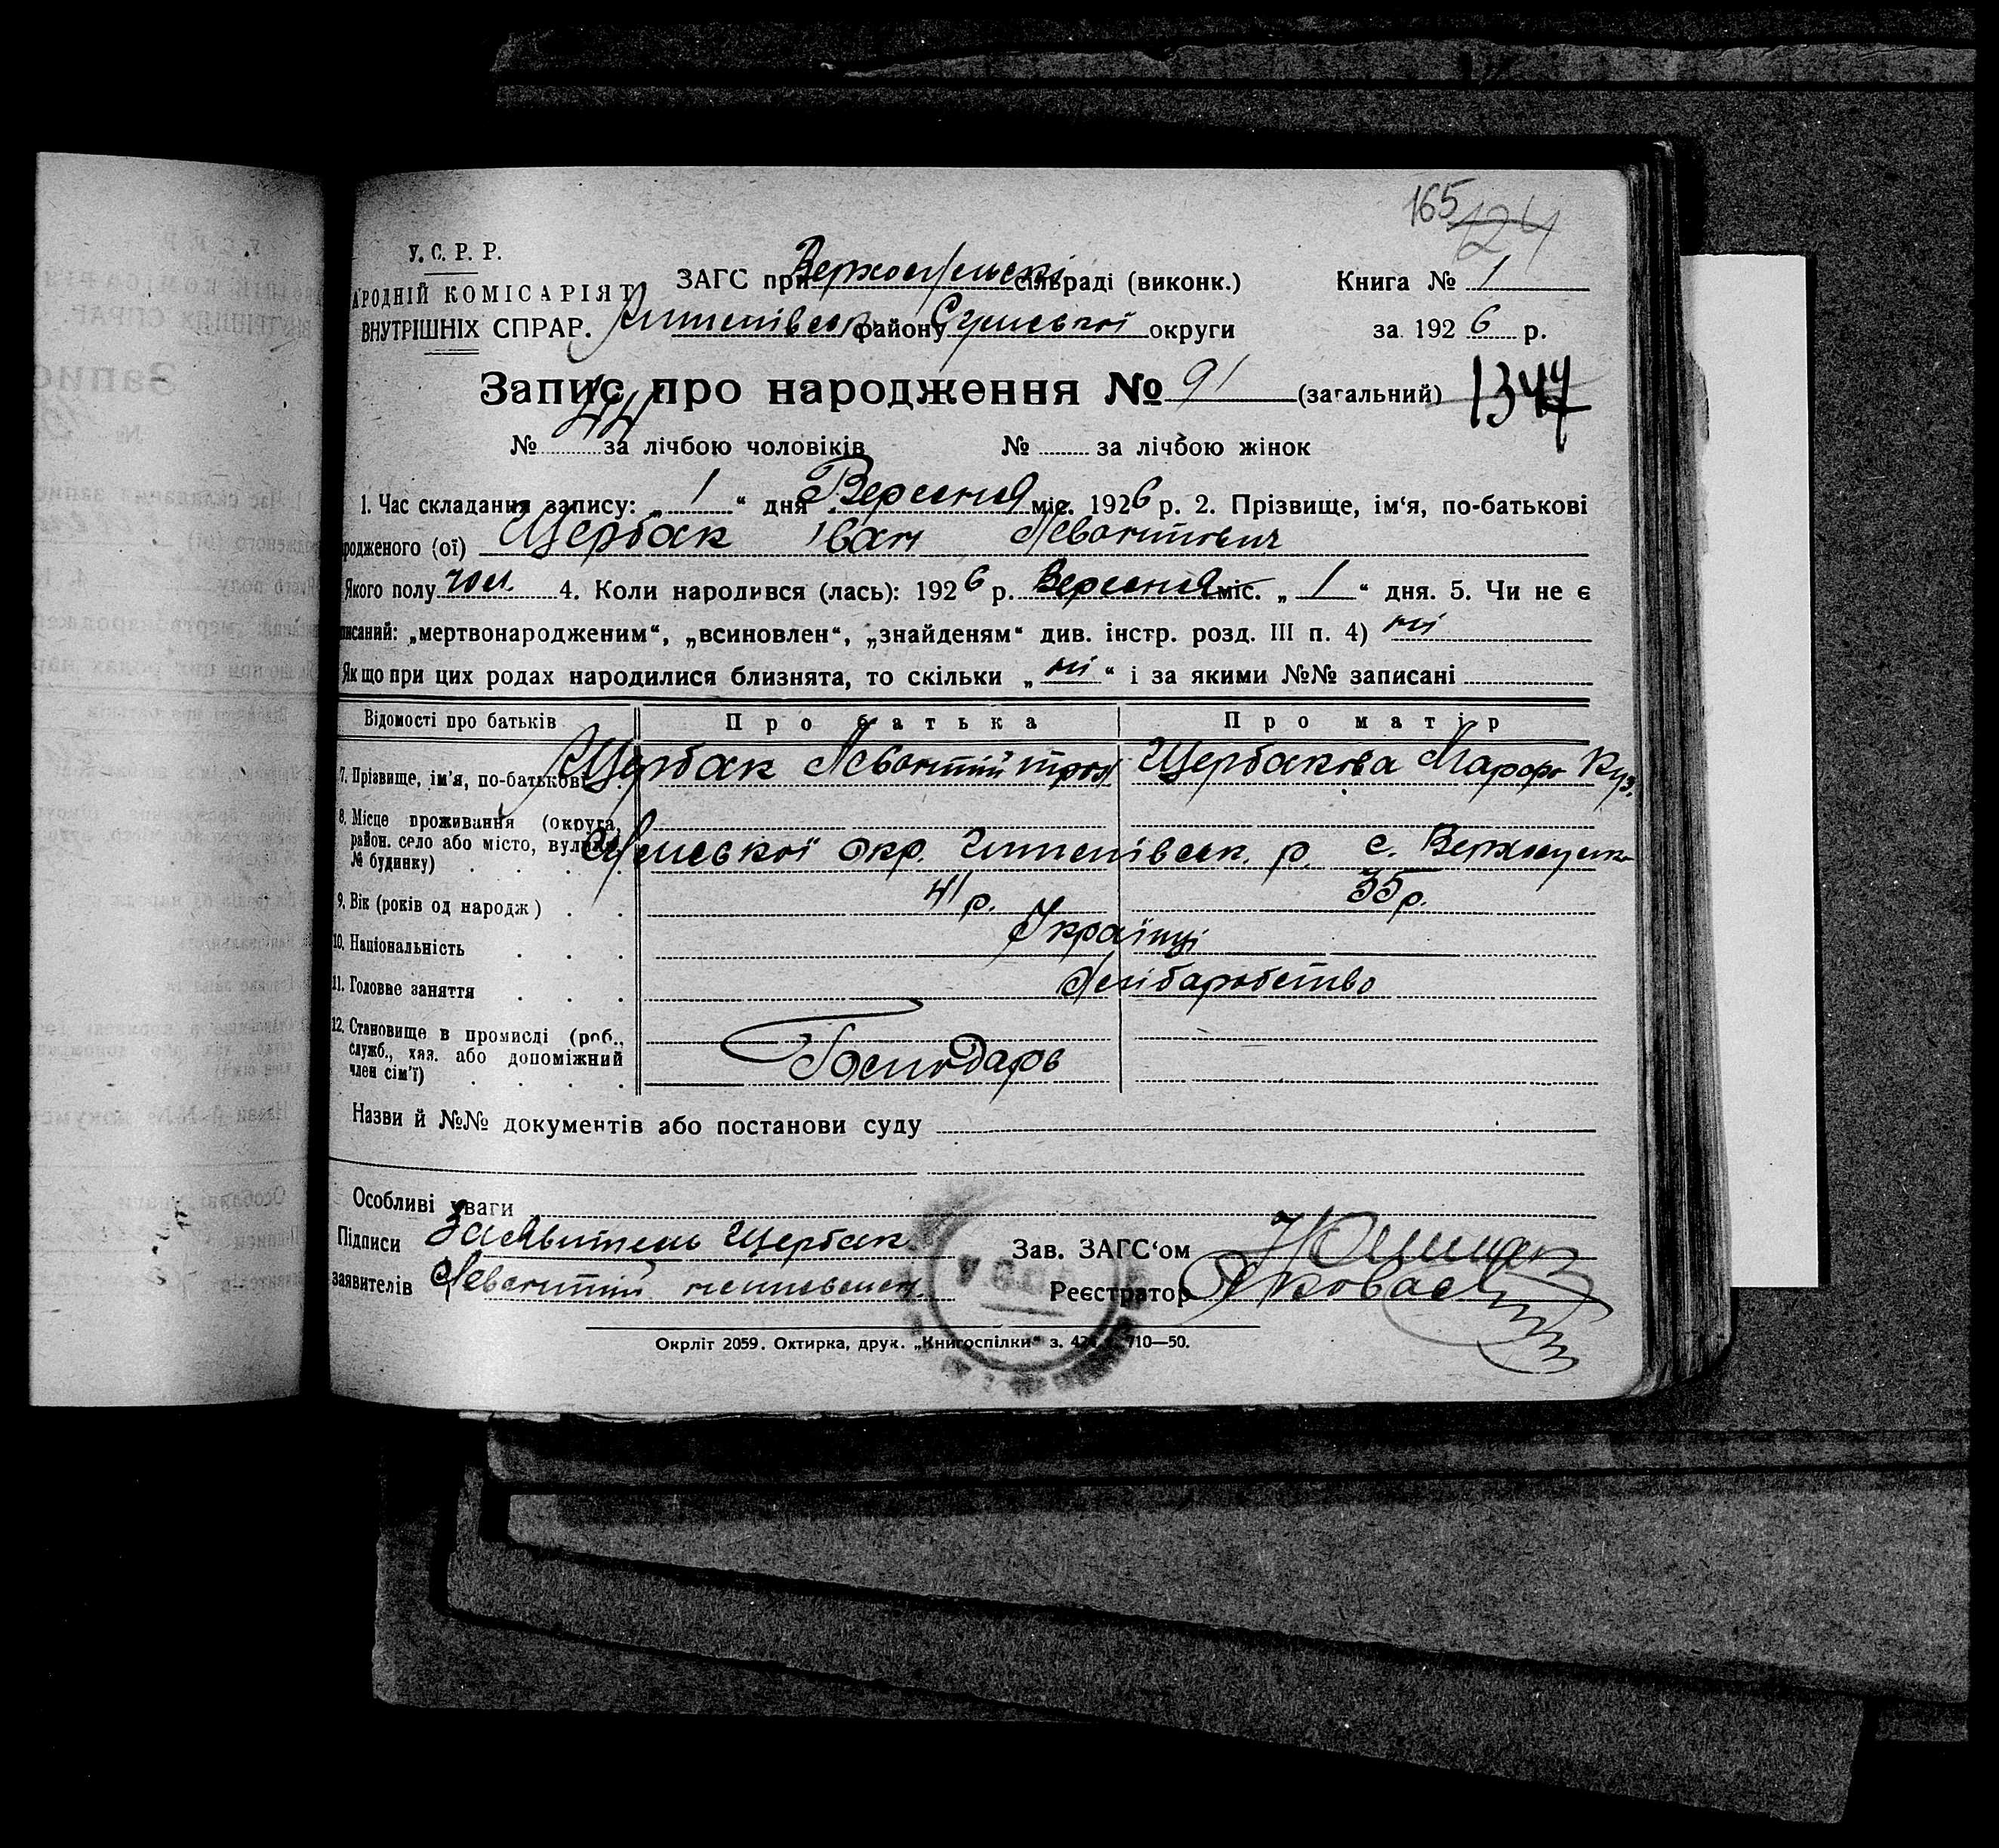 165 124
У.С.Р.Р.
АРОДНІЙ КОМІСАРІЯТ
ВНУТРІШНІХ СПРАР.
ЗАГС при Верхосульскі сільраді (виконк.)
Книга № 1
району Сумської округи
за 1926 р.
Запис про народження № 91 (загальний) 1347
№ 44 за лічбою чоловіків № за лічбою жінок
1. Час складання запису: „ 1 “ дня Вересня міс. 1926 р. 2. Прізвище, ім‘я, по-батькові
родженого (ої) Щербак Іван Левонтович
Якого полу чол. 4. Коли народився (лась): 1926 р. Вересня міс. „ 1 “ дня. 5. Чи не є
писаний: „мертвонародженим“, „всиновлен“, „знайденям“ див. інстр. розд. III п. 4) ні
Якщо при цих родах народилися близнята, то скільки „ ні “ і за якими №№ записані
Відомості про батьків Про батька Про матір
7. Прізвище, ім‘я, по-батькові Щербак Левонтій Щербакова Марфа Куз.
8. Місце проживання (округа,
район. село або місто, вулиця,
№ будинку)
Сумської окр. р. с.
9. Вік (років од народж) 41 р. 35 р.
10. Національність Українці
11. Головне заняття
12. Становище в промислі (роб.,
служб., хаз. або допоміжний
член сім‘ї) Господарь
Назви й №№ документів або постанови суду
Особливі уваги
Підписи Заявитель Щербак
заявителів Левонтій
Зав. ЗАГС‘ом
Реєстратор
Окрліт 2059. Охтирка, друк. „Книгоспілки“ з. 710—50.